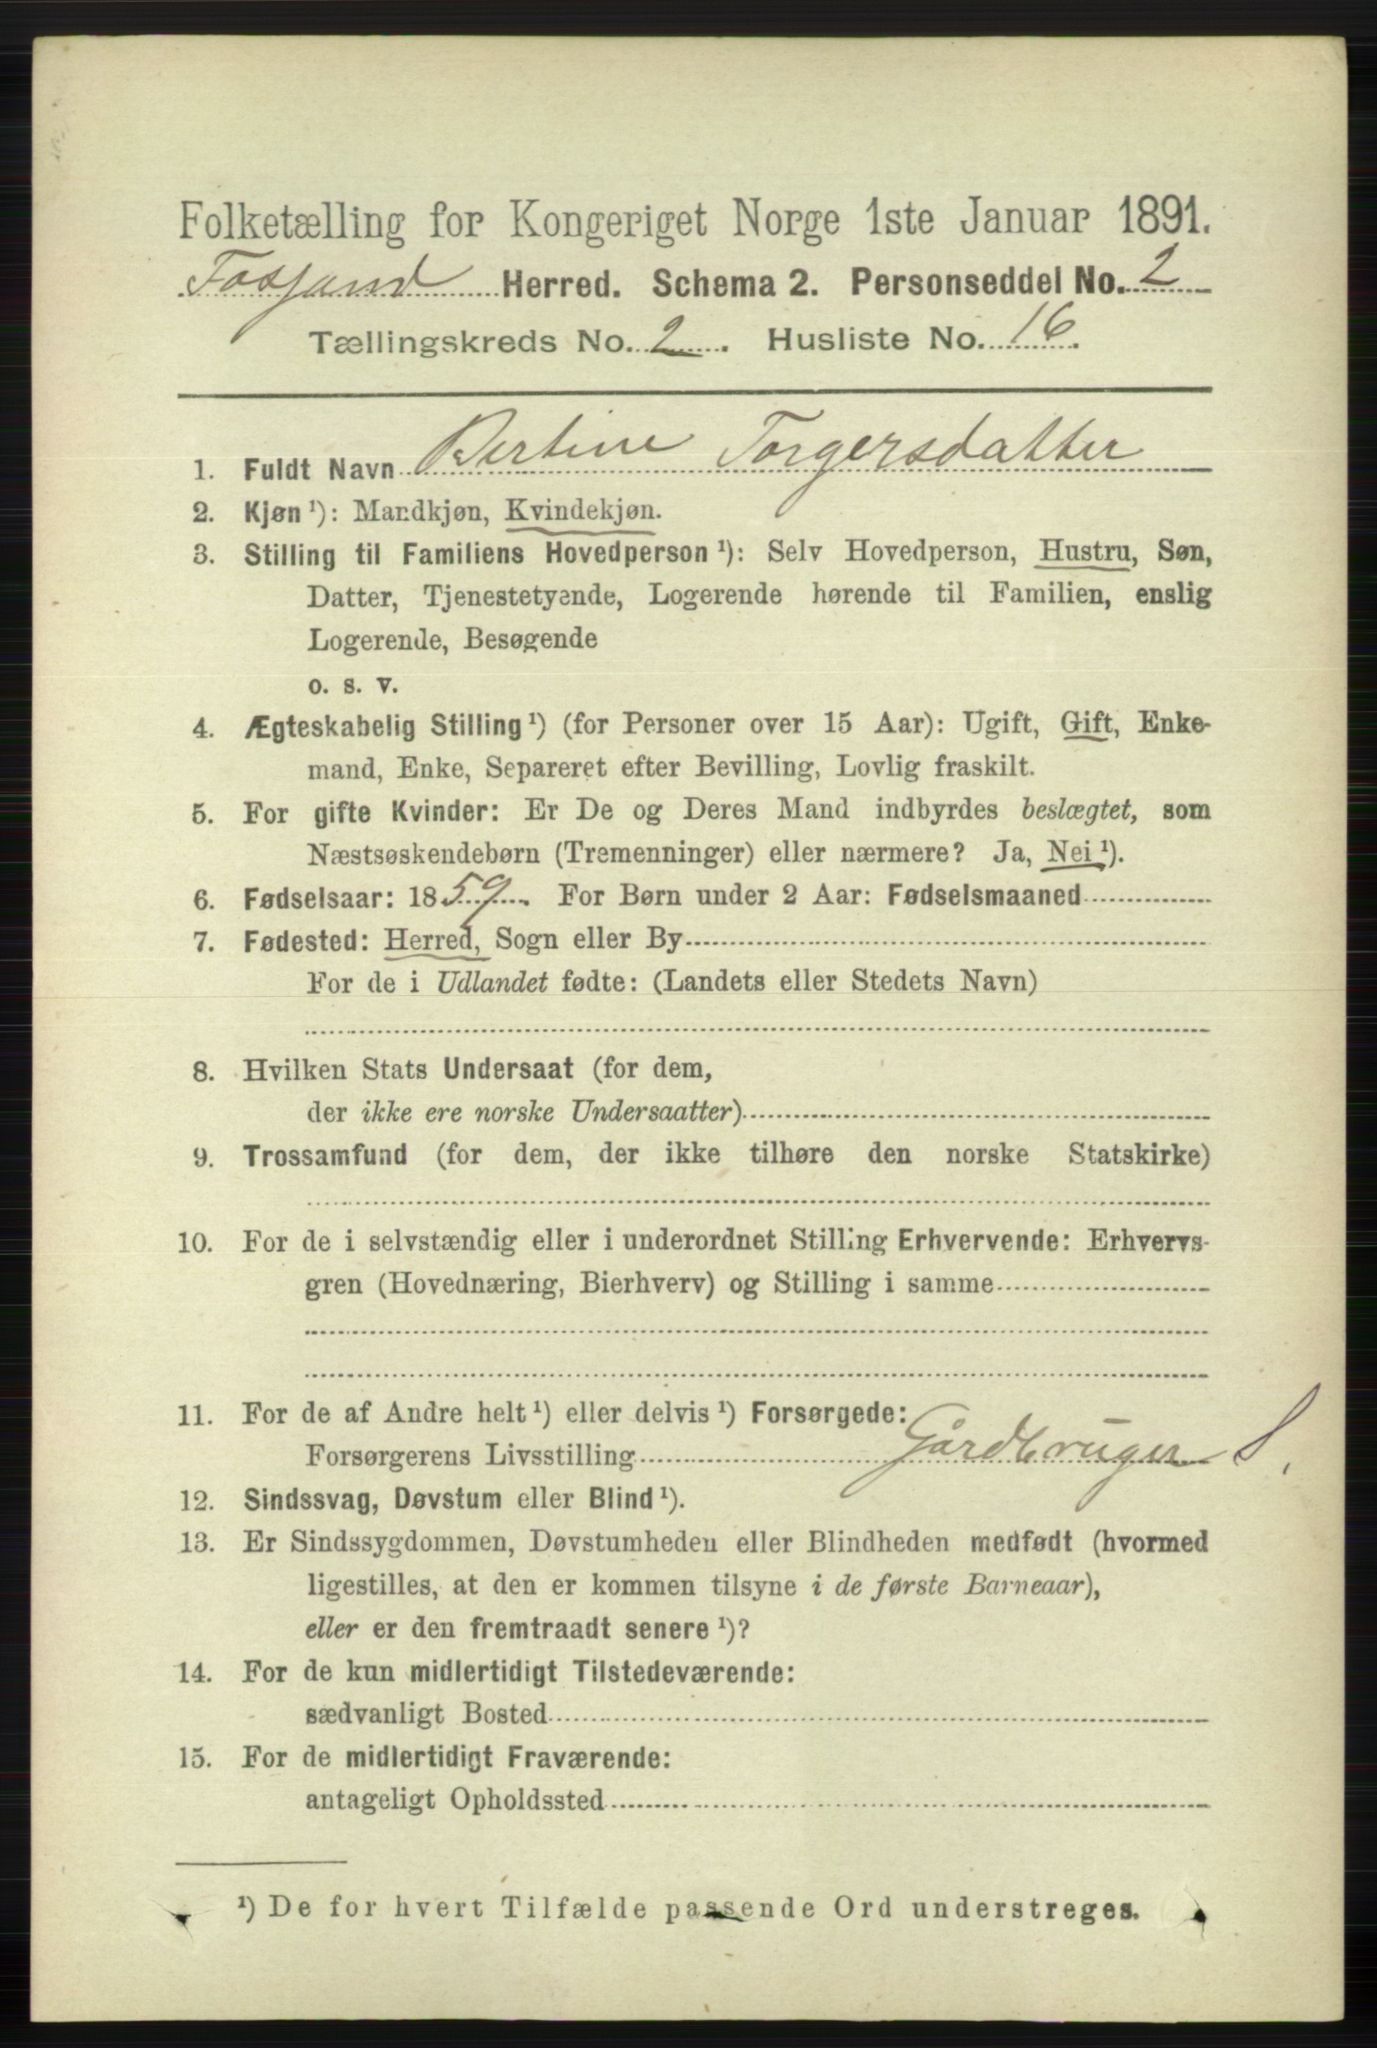 Folketælling for Kongeriget Norge 1ste Januar 1891.
Fossand Herred. Schema 2. Personseddel No. 2
Tællingskreds No. 2. Husliste No. 16.
1. Fuldt Navn Bertine Torgersdatter
2. Kjøn ¹): Mandkjøn, Kvindekjøn.
3. Stilling til Familiens Hovedperson ¹): Selv Hovedperson, Hustru, Søn,
Datter, Tjenestetyende, Logerende hørende til Familien, enslig
Logerende, Besøgende
o. s. v.
4. Ægteskabelig Stilling ¹) (for Personer over 15 Aar): Ugift, Gift, Enke-
mand, Enke, Separeret efter Bevilling, Lovlig fraskilt.
5. For gifte Kvinder: Er De og Deres Mand indbyrdes beslægtet, som
Næstsøskendebørn (Tremenninger) eller nærmere? Ja, Nei ¹).
6. Fødselsaar: 1859. For Børn under 2 Aar: Fødselsmaaned
7. Fødested: Herred, Sogn eller By
For de i Udlandet fødte: (Landets eller Stedets Navn)
8. Hvilken Stats Undersaat (for dem,
der ikke ere norske Undersaatter)
9. Trossamfund (for dem, der ikke tilhøre den norske Statskirke)
10. For de i selvstændig eller i underordnet Stilling Erhvervende: Erhvervs-
gren (Hovednæring, Bierhverv) og Stilling i samme
11. For de af Andre helt ¹) eller delvis ¹) Forsørgede:
Forsørgerens Livsstilling Gårdbruger S.
12. Sindssvag, Døvstum eller Blind ¹).
13. Er Sindssygdommen, Døvstumheden eller Blindheden medfødt (hvormed
ligestilles, at den er kommen tilsyne i de første Barneaar),
eller er den fremtraadt senere ¹)?
14. For de kun midlertidigt Tilstedeværende:
sædvanligt Bosted
15. For de midlertidigt Fraværende:
antageligt Opholdssted
¹) De for hvert Tilfælde passende Ord understreges.